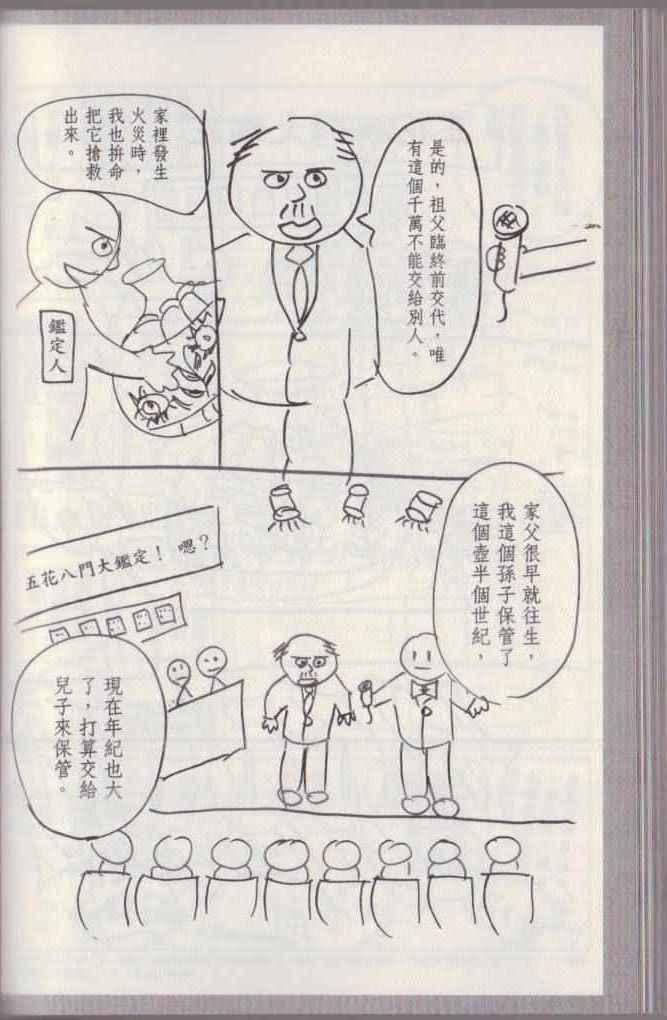 是的，祖父臨終前交代，唯
有這個千萬不能交給別人。
家裡發生
火災時，
我也拚命
把它搶救
出來。
鑑定人
家父很早就往生，
我這個孫子保管了
這個壺半個世紀，
五花八門大鑑定！ 嗯？
現在年紀也大
了，打算交給
兒子來保管。